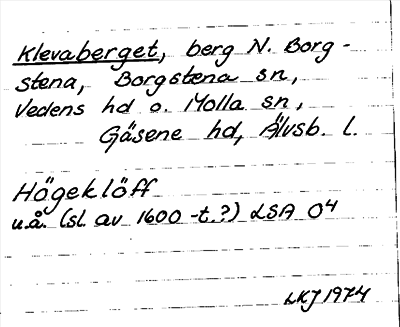 Klevaberget, berg N. Borg-
stena, Borgstena sn,
Vedens hd o. Molla sn,
Gäsene hd, Älvsb. l.
Högeklöff
u.å. (sl. av 1600-t.?) LSA O4
LKJ 1974